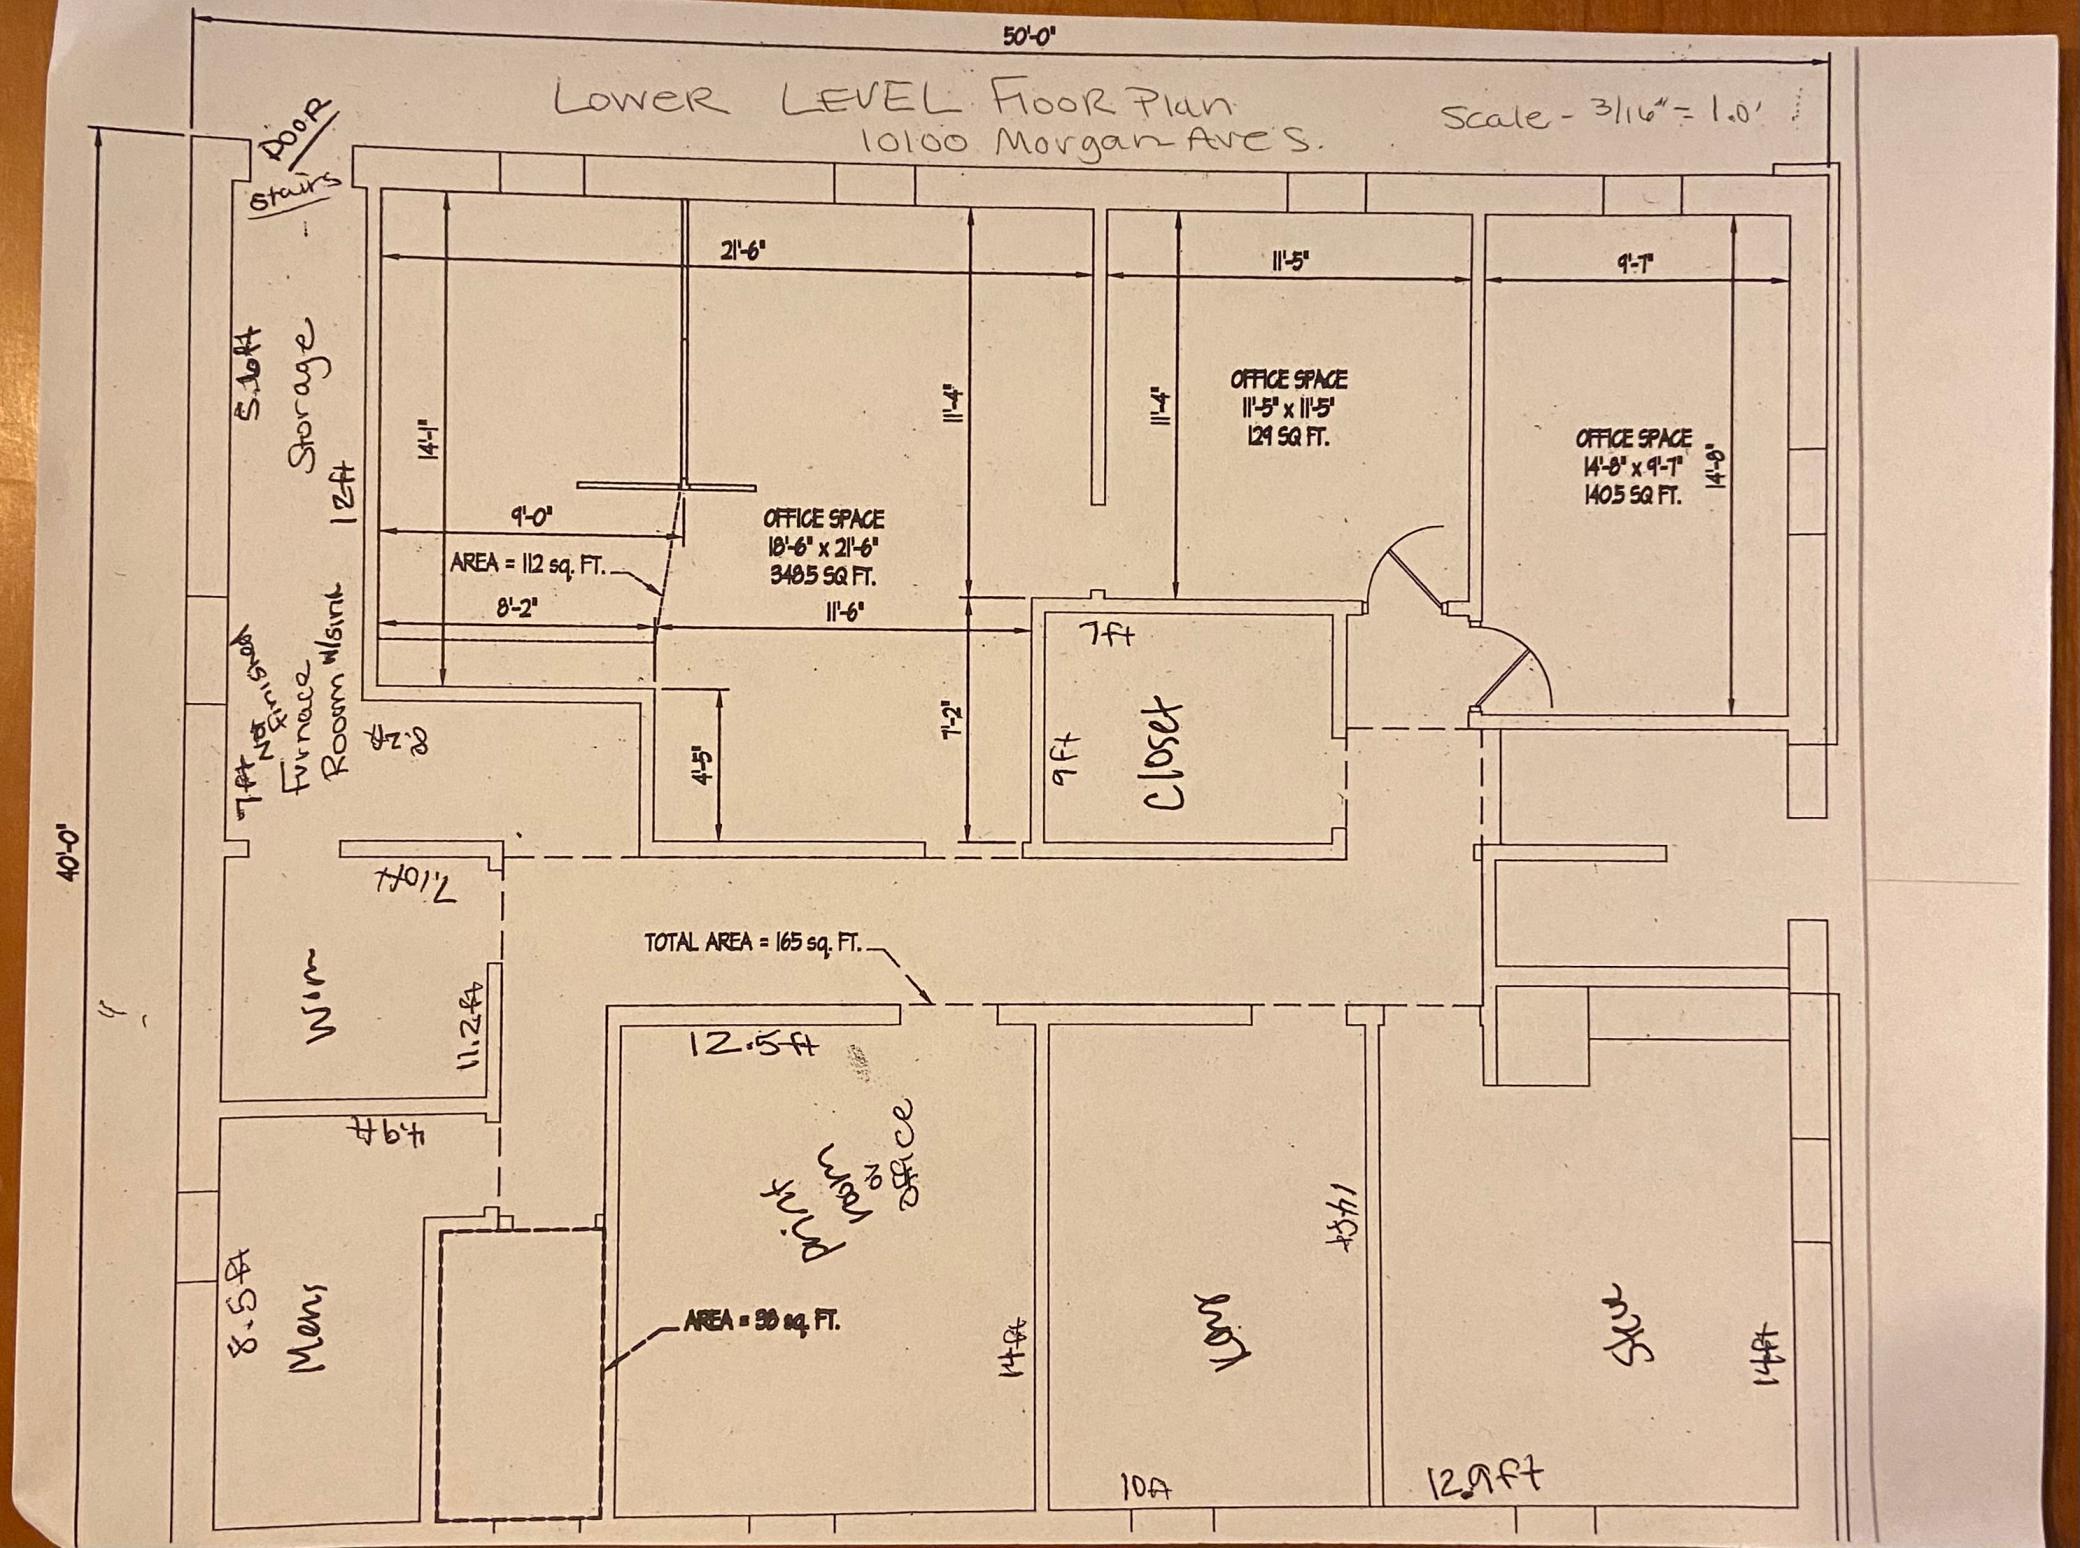 50'-0"
Lower LEVEL Floor Plan
10100 Morgan Ave S.
Scale - 3/16" = 1.0'
DOOR
Stairs
21'-6"
11'-5"
9'-7"
Storage
12ft
14'-1"
11'-4"
11'-4"
OFFICE SPACE
11'-5" x 11'-5"
129 SQ FT.
OFFICE SPACE
14'-8" x 9'-7"
140.5 SQ FT.
14'-8"
9'-0"
AREA = 112 sq. FT.
8'-2"
OFFICE SPACE
18'-6" x 21'-6"
348.5 SQ FT.
11'-6"
7ft
9ft
Closet
7'-2"
4'-5"
7ft Not
Finished
Furnace
Room w/sink
40'-0"
7.10ft
Wom
11.2ft
TOTAL AREA = 165 sq. FT.
4.9ft
8.5ft
Mens
12.5ft
print
room
or
office
14ft
AREA = 58 sq. FT.
14ft
10ft
14ft
12.9ft